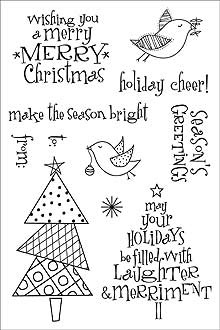 wishing you
a merry
*MERRY*
Christmas
holiday cheer!
make the season bright
SEASON'S
GREETINGS
to:
from:
may
your
HOLIDAYS
be filled, with
LAUGHTER
& MERRIMENT